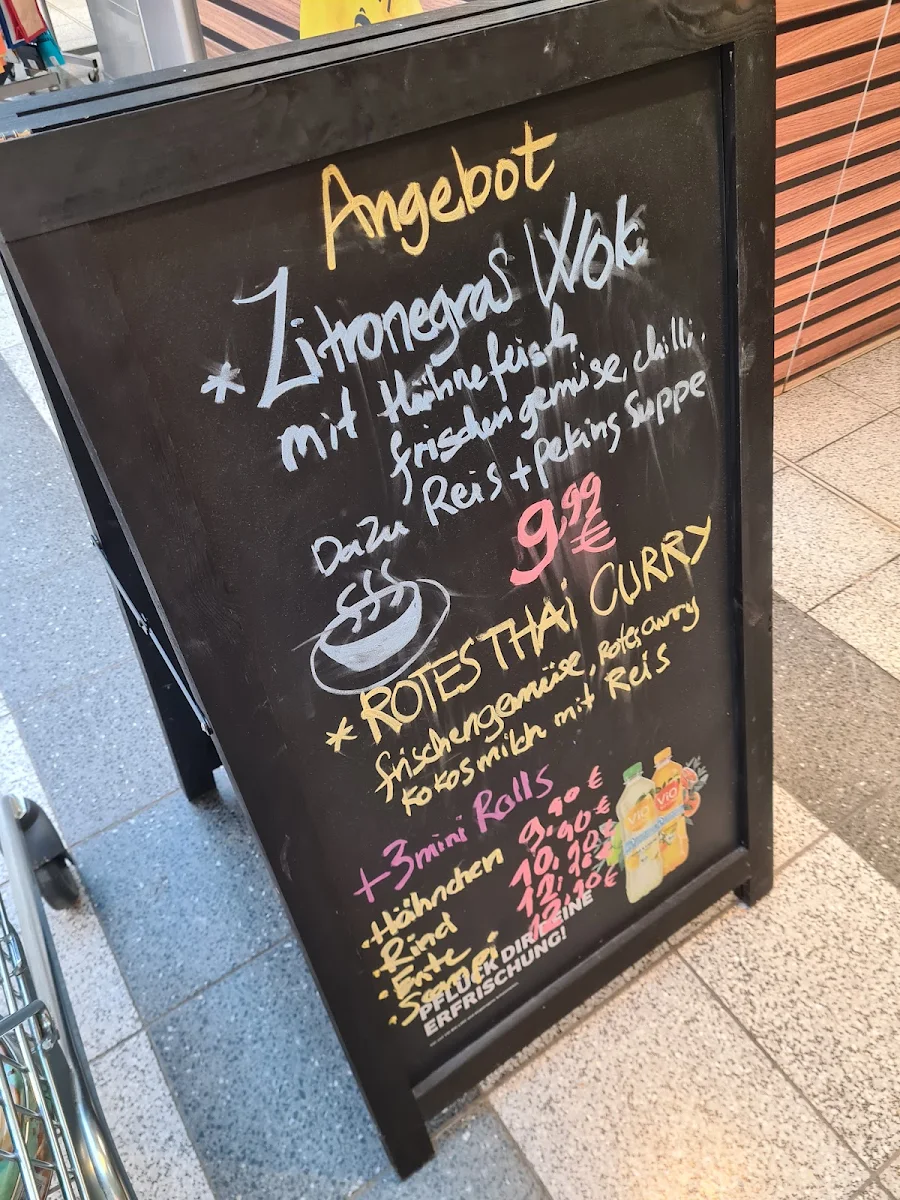 Angebot
* Zitronegras Wok
mit Hähnefeisch
frischen gemüse, chilli.
Dazu Reis + peking Suppe
9,99 €
* ROTES THAI CURRY
frischengemüse, Rotes curry
Kokosmilch mit Reis
+3 mini Rolls
• Hähnchen 9,90 €
• Rind 10,90 €
• Ente 12,10 €
• Scampi 12,10 €
VIO VIO
PFLÜCK DIR DEINE
ERFRISCHUNG!